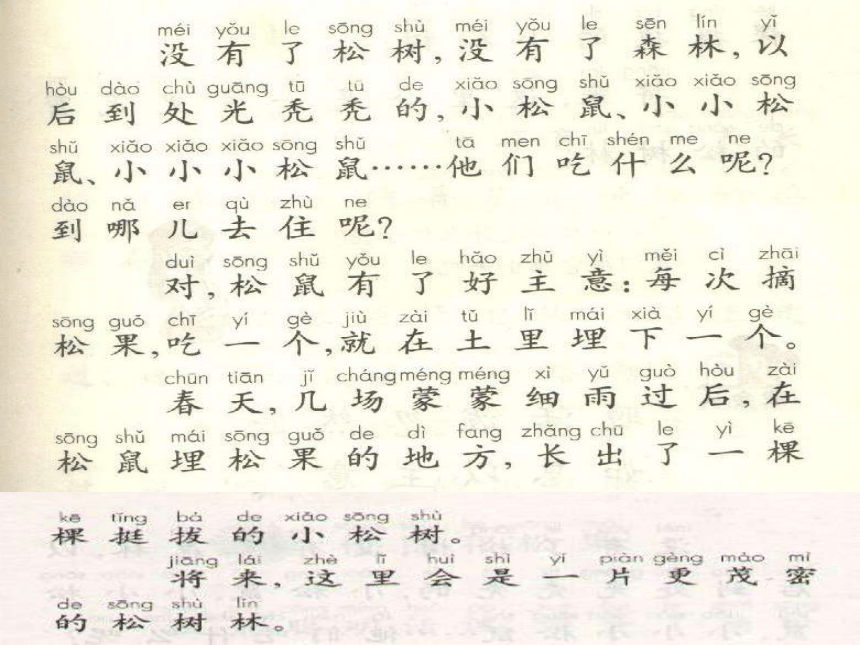 méi yǒu le sōng shù méi yǒu le sēn lín yǐ
没有了松树,没有了森林,以
hòu dào chù guāng tū tū de xiǎo sōng shǔ xiǎo xiǎo sōng
后到处光秃秃的,小松鼠、小小松
shǔ xiǎo xiǎo xiǎo sōng shǔ tā men chī shén me ne
鼠、小小小松鼠……他们吃什么呢?
dào nǎ er qù zhù ne
到哪儿去住呢?
duì sōng shǔ yǒu le hǎo zhǔ yì měi cì zhāi
对,松鼠有了好主意:每次摘
sōng guǒ chī yí gè jiù zài tǔ lǐ mái xià yí gè
松果,吃一个,就在土里埋下一个。
chūn tiān jǐ cháng méng méng xì yǔ guò hòu zài
春天,几场蒙蒙细雨过后,在
sōng shǔ mái sōng guǒ de dì fang zhǎng chū le yì kē
松鼠埋松果的地方,长出了一棵
kē tǐng bá de xiǎo sōng shù
棵挺拔的小松树。
jiāng lái zhè lǐ huì shì yí piàn gèng mào mì
将来,这里会是一片更茂密
de sōng shù lín
的松树林。